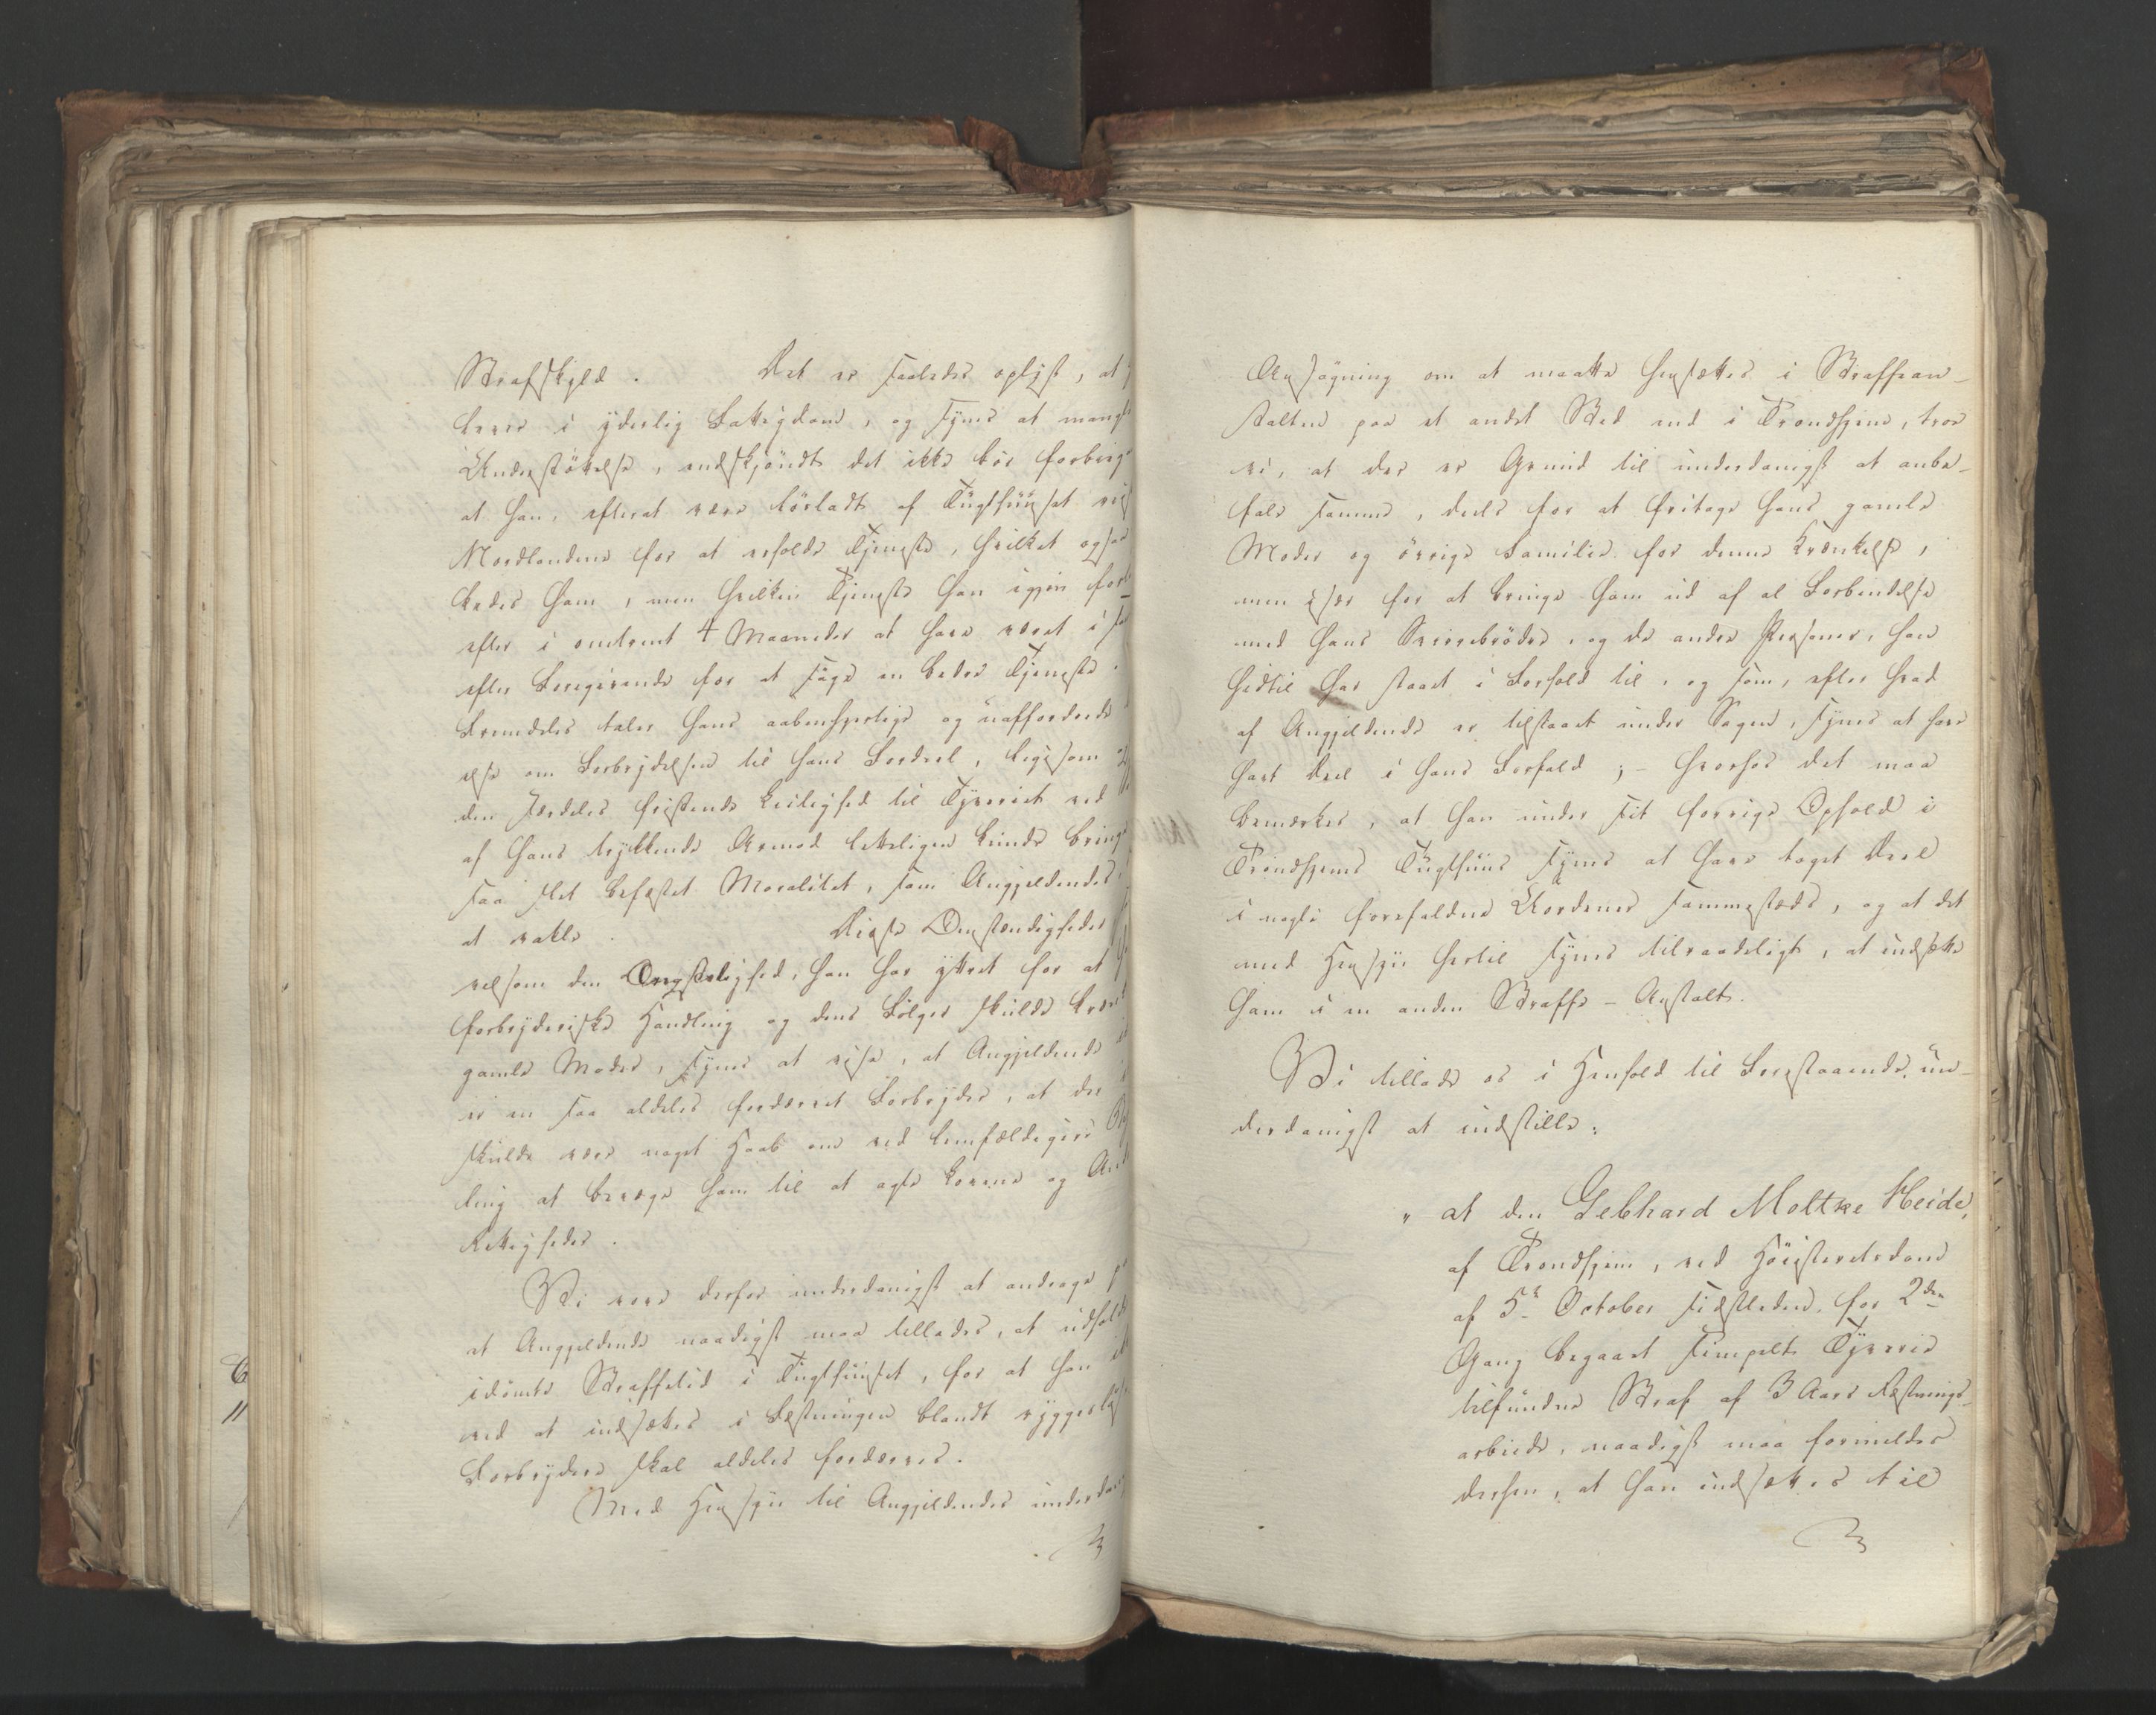 Strafskyld. Det er saaledes oplyst, at
lever i yderlig Fattigdom, og synes at mangle
Understøttelse, endskjøndt det ikke bør forbiegaaes
at han, efterat være løsladt af Tugthuuset reiste
Nordlandene for at erholde Tjeneste, hvilket ogsaa
kedes ham, men hvilken Tjeneste han igjen forlod
efter i omtrent 4 Maaneder at have været i
efter Foregivende for at søge en bedre Tjeneste.
Fremdeles taler hans aabenhjertige og uaffordrede
else om Forbrydelsen til hans Fordeel, ligesom og
den særdeles fristende Leilighed til Tyveriet ved
af hans trykkende Armod letteligen kunde bringe
saa slet befæstet Moralitet, som Angjeldendes
at vakle. Disse Omstændigheder
velsom den Ængstelighed, han har yttret for at
forbryderiske Handling og dens Følger skulde krænke
gamle Moder, synes at vise, at Angjeldende
er en saa aldeles fordærvet Forbryder, at der
skulde være noget Haab om ved lemfældigere
ling at bevæge ham til at agte Lovene og
Rettigheder.
Vi vove derfor underdanigst at andrage
at Angjeldende naadigst maa tillades, at udholde
idømte Straffetid i Tugthuuset, for at han
ved at indsættes i Fæstningen blandt ryggesløse
Forbrydere skal aldeles fordærves.
Med Hensyn til Angjeldendes underdanige
Ansøgning om at maatte hensættes i Straffean-
stalten paa et andet Sted end i Trondhjem, troe
vi, at der er Grund til underdanigst at anbe-
fale samme, deels for at fritage hans gamle
Moder og øvrige Familie for denne Krænkelse,
men især for at bringe ham ud af al Forbindelse
med hans Svirrebrødre, og de andre Personer, han
hidtil har staaet i Forhold til, og som, efter hvad
af Angjeldende er tilstaaet under Sagen, synes at have
havt Deel i hans Forfald; - hvorhos det maa
bemærkes, at han under sit forrige Ophold i
Trondhjems Tugthuus synes at have taget Deel
i nogle forefaldne Uordener sammesteds, og at det
med Hensyn hertil synes tilraadeligt, at indsætte
ham i en anden Straffe-Anstalt.
Vi tillade os i Henhold til Forestaaende un-
derdanigst at indstille:
" at den Gebhard Moltke Heide,
af Trondhjem, ved Høiesteretsdom
af 5t October sidstleden, for 2den
Gang begaaet simpelt Tyverie
tilfundne Straf af 3 Aars Fæstnings-
arbeide, naadigst maa formildes
derhen, at han indsættes til